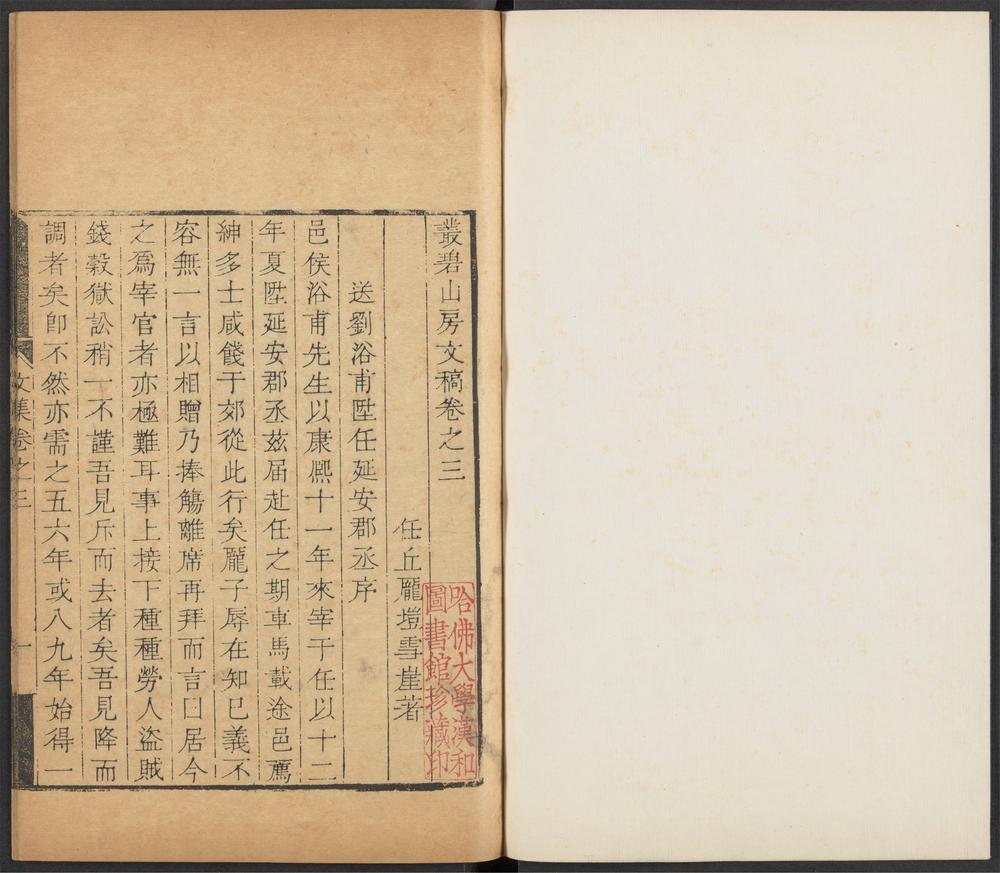 叢碧山房文稿卷之三
任丘龐塏雪崖著
送劉浴甫陞任延安郡丞序
邑侯浴甫先生以康熈十一年來宰于任以十二
年夏陞延安郡丞茲届赴任之期車馬載途邑薦
紳多士咸餞于郊從此行矣龐子辱在知巳義不
容無一言以相贈乃捧觴離席再拜而言曰居今
之爲宰官者亦極難耳事上接下種種勞人盜賊
錢穀獄訟稍一不謹吾見斥而去者矣吾見降而
調者矣卽不然亦需之五六年或八九年始得一
文集卷之三
一
哈佛大學漢和
圖書館珍藏印